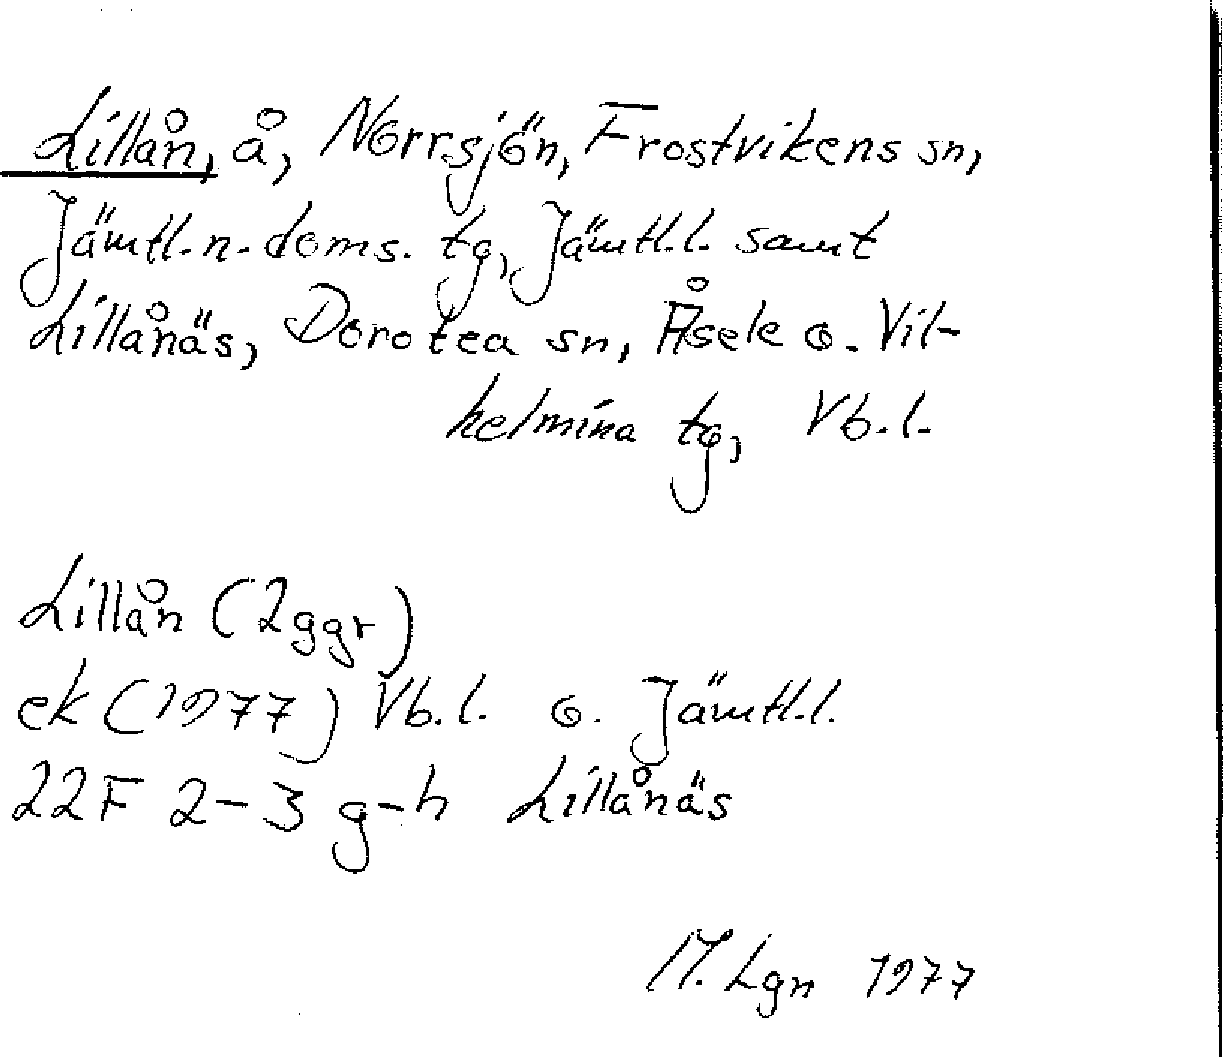 Lillån, å, Norrsjön, Frostvikens sn,
Jämtl. n. doms. tg, Jämtl.l. samt
Lillånäs, Dorotea sn, Åsele o. Vil-
helmina tg, Vb.l.
Lillån (2ggr)
ek (1977) Vb.l. o. Jämtl.l.
22F 2-3 g-h Lillånäs
M. Lgn 1977